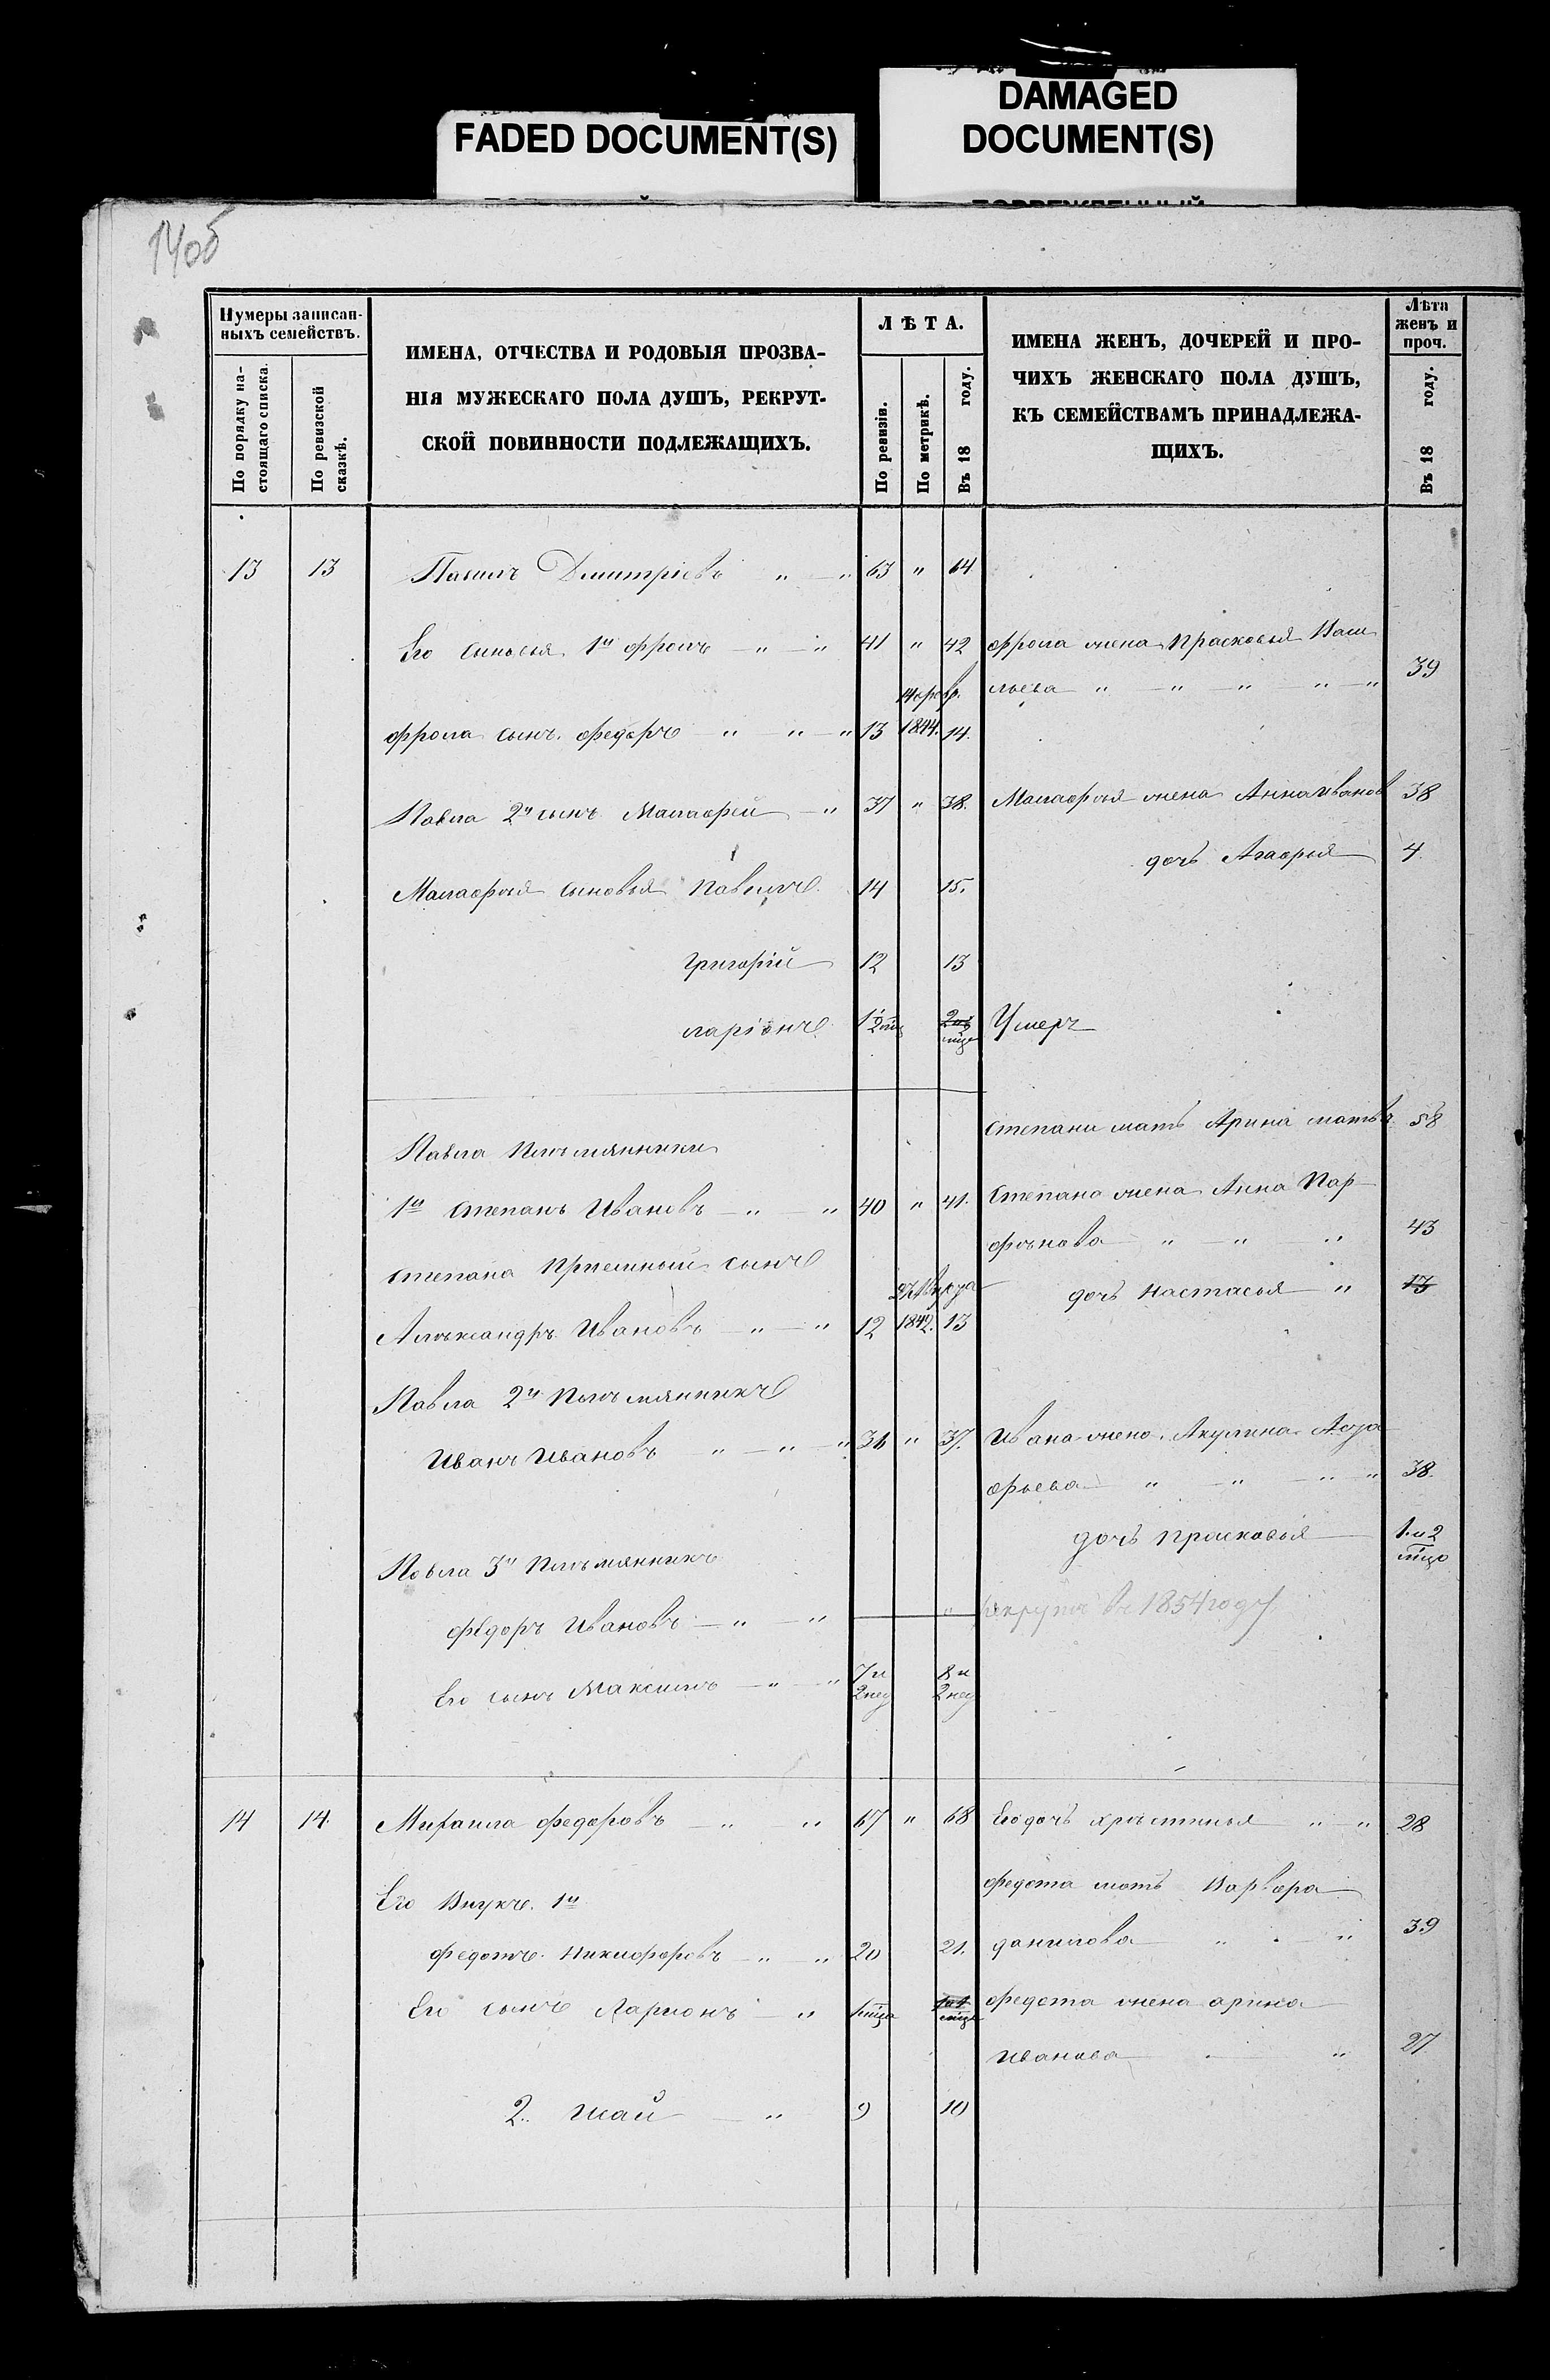 FADED DOCUMENT(S)
DAMAGED
DOCUMENT(S)
14об
Нумеры записан-
ныхъ семействъ.
По порядку на-
стоящаго списка.
По ревизской
сказкѣ.
ИМЕНА, ОТЧЕСТВА И РОДОВЫЯ ПРОЗВА-
НІЯ МУЖЕСКАГО ПОЛА ДУШЪ, РЕКРУТ-
СКОЙ ПОВИННОСТИ ПОДЛЕЖАЩИХЪ.
ЛѢТА.
По ревизіи.
По метрикѣ.
Въ 18 году.
ИМЕНА ЖЕНЪ, ДОЧЕРЕЙ И ПРО-
ЧИХЪ ЖЕНСКАГО ПОЛА ДУШЪ,
КЪ СЕМЕЙСТВАМЪ ПРИНАДЛЕЖА-
ЩИХЪ.
Лѣта
женъ и
проч.
Въ 18 году.
13 13 Павилъ Дмитріевъ " " 63 " 64
Его сыновья 1й Фролъ " " 41 " 42 Фрола жена Прасковья Васи
льева " " " " " 39
14 февр.
Фрола сынъ Федоръ " " " 13 1844. 14.
Павла 2й сынъ Малафей " 37 " 38. Малафѣя жена Анна Иванов 38
дочь Агафья 4.
Малафѣя сыновья Павилъ 14 15.
Григорій 12 13
Ларіонъ 1 и 2 мѣс 2 и 2 мѣце Умеръ
Степана мать Арина Матвѣ 58
Павла Плѣмянники
1й Степанъ Ивановъ " " 40 " 41. Степана жена Анна Пар
фѣнова " " " 43
Степана Приемный сынъ
дочь Настасья " 13
Алѣксандръ Ивановъ " " 12 1842. 13
Павла 2й Плѣмянникъ
Иванъ Ивановъ " " " 36 " 37. Ивана жена Акулина Ага
фьева " " " " 38.
дочь Прасковья 1 и 2 мѣцо
Павла 3й Плѣмянникъ
Федоръ Ивановъ " " " Рекрутъ въ 1854 году
Его сынъ Максимъ " " 7 и 2 нед 8 и 2 нед
14 14. Михаила Федоровъ " " 67 " 68 Его дочь Хрѣстинья " " 28
Федота мать Варвара
Его Внукъ 1й
Данилова " " 39
Федотъ Никифоровъ " " 20 21.
Его сынъ Ларионъ " 1 мѣца Федота жена Арина
Иванова " 27
2. " 9 10